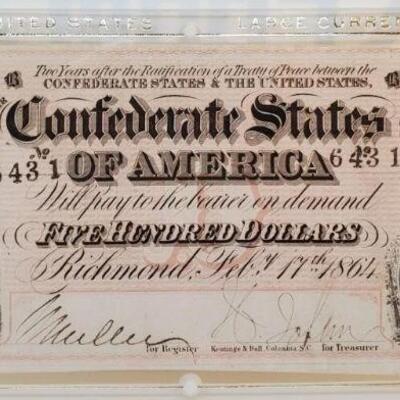 UNITED STATES LARGE CURREN
B B
Two Years after the Ratification of a Treaty of Peace between the
CONFEDERATE STATES & THE UNITED STATES,
Confederate States
6431 No 6431 No
OF AMERICA
Will pay to the bearer on demand
FIVE HUNDRED DOLLARS
Richmond, Feby. 17th 1864
for Register Keatinge & Ball, Columbia, S.C. for Treasurer